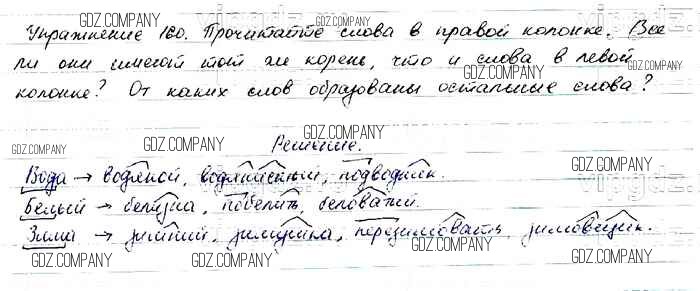 GDZ.COMPANY GDZ.COMPANY vipgdz.
Упражнение 160. Прочитайте слова в правой колонке. Все
ли они имеют тот же корень, что и слова в левой
GDZ.COMPANY GDZ.COMPANY
колонке? От каких слов образованы остальные слова?
GDZ.COMPANY
GDZ.COMPANY GDZ.COMPANY
Решение.
GDZ.COMPANY GDZ.COMPANY
Вода → водяной, водянистый, подводник.
vipgdz.
Белый → белизна, побелить, беловатый.
GDZ.COMPANY GDZ.COMPANY
Зима → зимний, зимушка, перезимовать, зимовщик.
GDZ.COMPANY GDZ.COMPANY GDZ.COMPANY